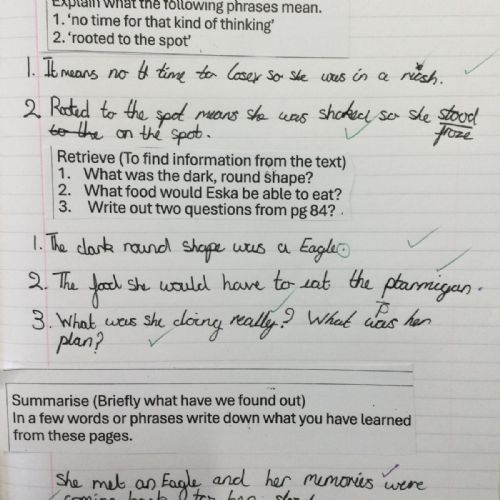 Explain what the following phrases mean.
1. 'no time for that kind of thinking'
2. 'rooted to the spot'
1. It means no time to loser so she was in a rush.
2 Rooted to the spot means she was shoked so she stood
to the on the spot. froze
Retrieve (To find information from the text)
1. What was the dark, round shape?
2. What food would Eska be able to eat?
3. Write out two questions from pg 84?
1. The dark round shape was a Eagle.
2. The food she would have to eat the ptarmigan.
3. What was she doing really? What was her
plan?
Summarise (Briefly what have we found out)
In a few words or phrases write down what you have learned
from these pages.
She met an Eagle and her memories were
coming back